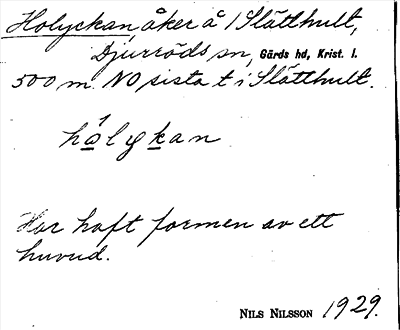 Holyckan åker å 1 Slätthult,
Djurröds sn, Gärds hd, Krist. l.
500 m. NO sista t i Slätthult.
hålykan
Har haft formen av ett
huvud.
NILS NILSSON 1929.